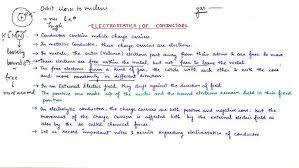 Orbit close to nucleus
ELECTROSTATICS OF CONDUCTORS
→ Conductors contain mobile charge carriers.
→ In metallic conductors, these charge carriers are electrons.
→ In metals, the outer (valence) electrons part away from their atoms & are free to move.
→ These electrons are free within the metal but not free to leave the metal.
→ The free electrons form a kind of gas, the collide with each other & with the ions and move randomly in different directions.
→ In an External Electric field, they drift against the direction of field.
→ The positive ions made up of the nuclei and the bound electrons remain held in their fixed position.
→ In electrolytic conductors, the charge carriers are both positive and negative ions; but the movement of the charge carriers is affected both by the external electric field as also by the so called chemical forces.
→ Let us record important notes & results regarding electrostatics of conductors.
loosely
bound e⁻
free